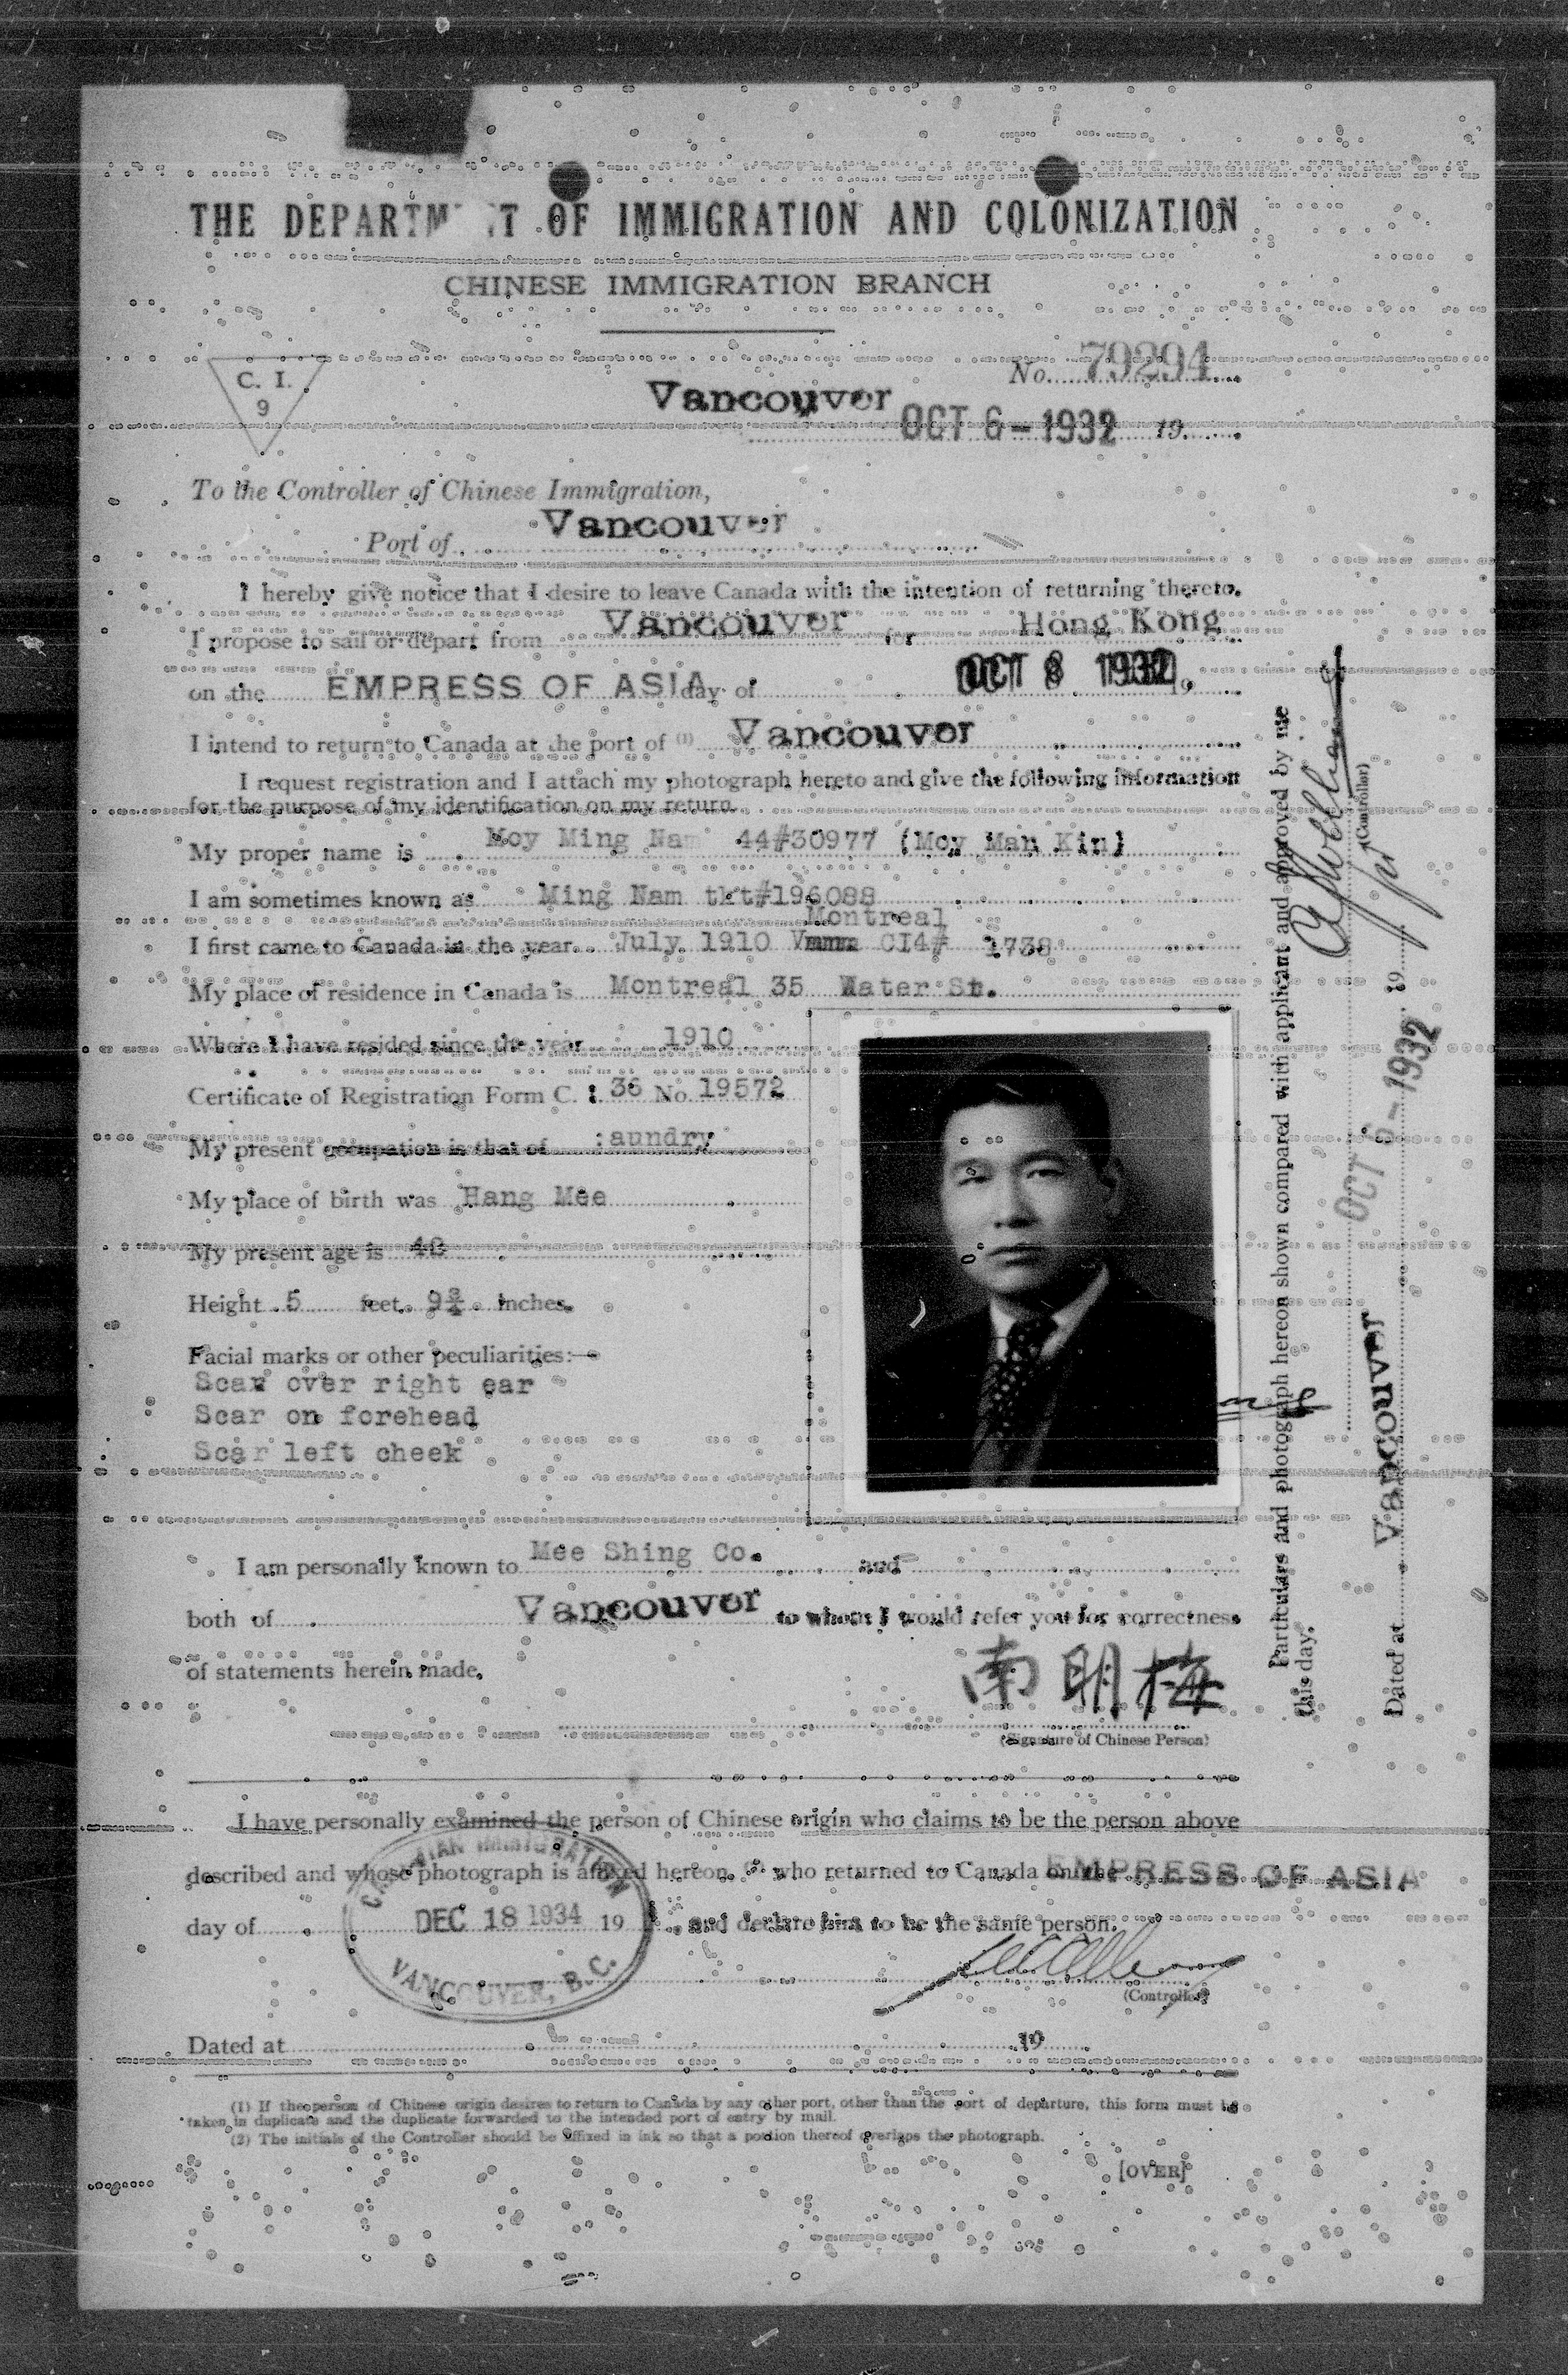 THE DEPARTM T OF IMMIGRATION AND COLONIZATION
CHINESE IMMIGRATION BRANCH
C. I.
9
No. 79294
Vancouver
OCT 6 - 1932 19
To the Controller of Chinese Immigration,
Port of Vancouver
I hereby give notice that I desire to leave Canada with the intention of returning thereto.
I propose to sail or depart from Vancouver for Hong Kong
on the EMPRESS OF ASIA day of OCT 8 1932
I intend to return to Canada at the port of (1) Vancouver
I request registration and I attach my photograph hereto and give the following information
for the purpose of my identification on my return.
My proper name is Moy Ming Nam 44#30977 (Moy Man Kin)
I am sometimes known as Ming Nam tkt#196088
Montreal
I first came to Canada in the year July 1910 CI4# 1738
My place of residence in Canada is Montreal 35 Water St.
Where I have resided since the year 1910
Certificate of Registration Form C. I. 36 No. 19572
My present occupation is that of :aundry
My place of birth was Hang Mee
My present age is
Height 5 feet 9¾ inches.
Facial marks or other peculiarities:—
Scar over right ear
Scar on forehead
Scar left cheek
I am personally known to Mee Shing Co. and
both of Vancouver to whom I would refer you for correctness
of statements herein made.
南明梅
(Signature of Chinese Person)
I have personally examined the person of Chinese origin who claims to be the person above
described and whose photograph is affixed hereon who returned to Canada on the EMPRESS OF ASIA
day of 19 and declare him to be the same person.
CANADIAN IMMIGRATION
DEC 18 1934
VANCOUVER, B.C.
(Controller)
Dated at 19
(1) If the person of Chinese origin desires to return to Canada by any other port, other than the port of departure, this form must be
taken in duplicate and the duplicate forwarded to the intended port of entry by mail.
(2) The initials of the Controller should be affixed in ink so that a portion thereof overlaps the photograph.
[OVER]
Particulars and photograph hereon shown compared with applicant and approved by me
this day.
(Controller)
Dated at Vancouver OCT 6 - 1932 19